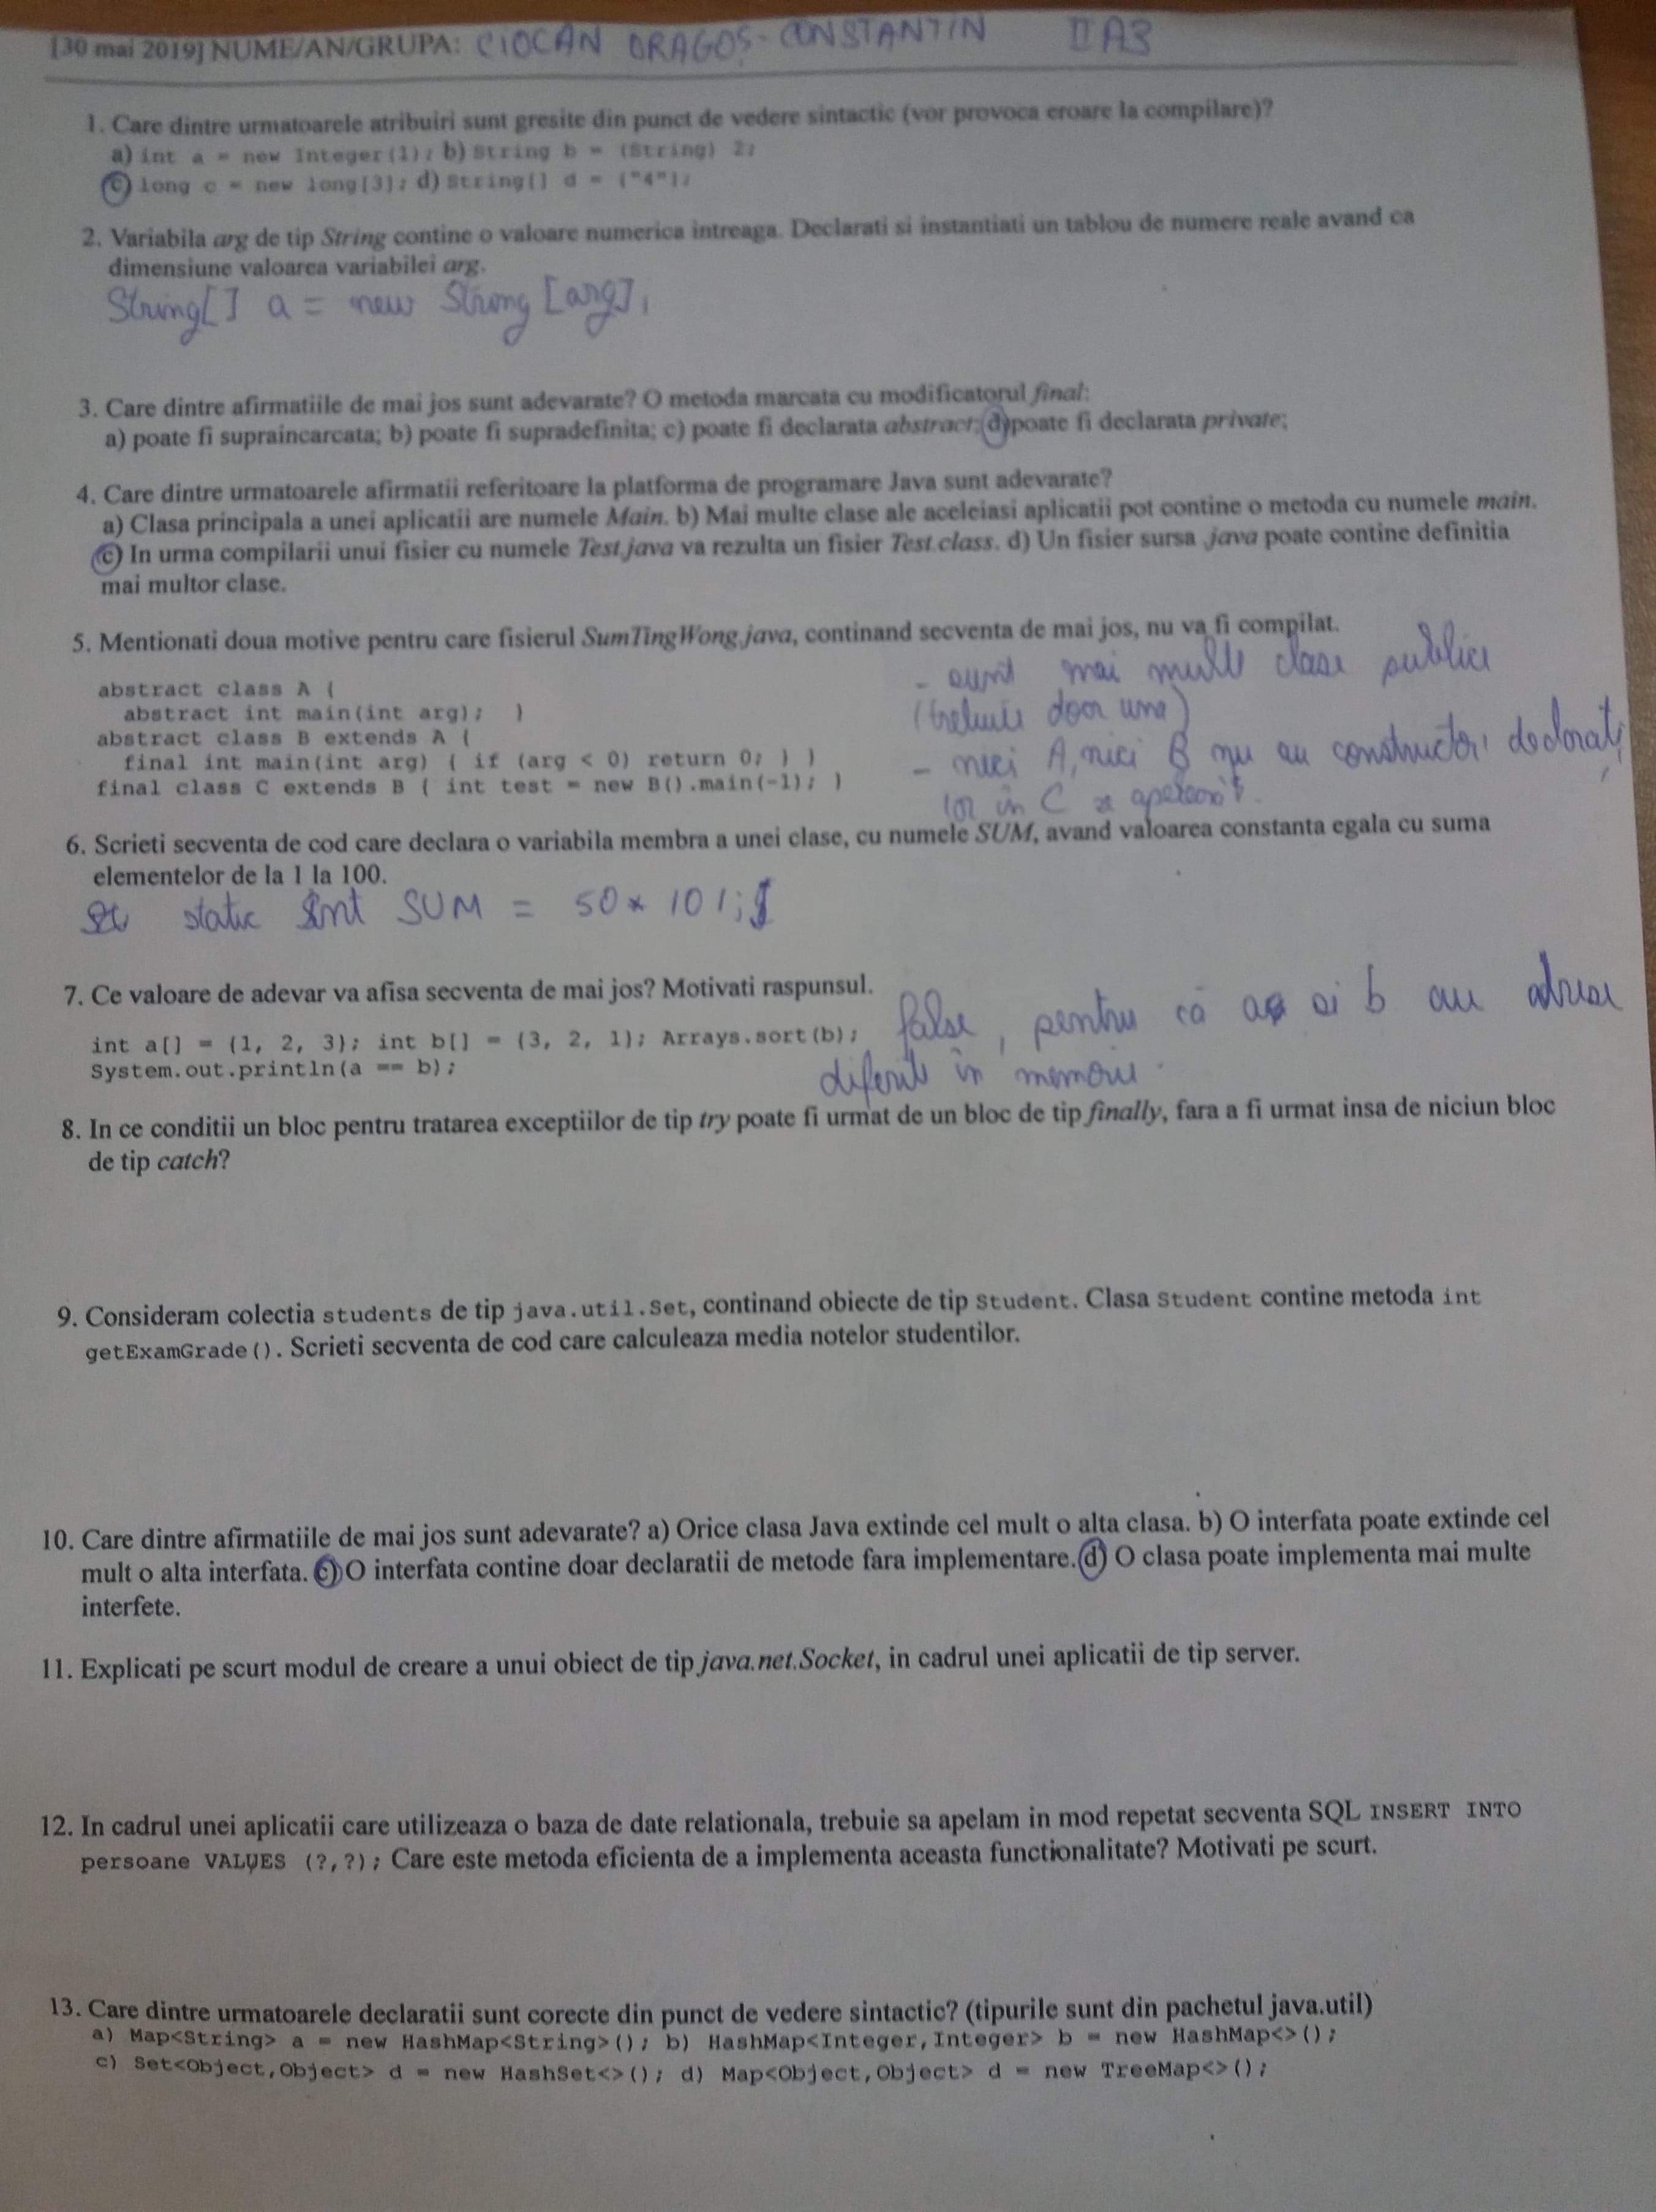 [30 mai 2019] NUME/AN/GRUPA: CIOCAN DRAGOȘ-CONSTANTIN IIA3
1. Care dintre urmatoarele atribuiri sunt gresite din punct de vedere sintactic (vor provoca eroare la compilare)?
a) int a = new Integer(1); b) String b = (String) 2;
c) long c = new long[3]; d) String[] d = {"4"};
2. Variabila arg de tip String contine o valoare numerica intreaga. Declarati si instantiati un tablou de numere reale avand ca
dimensiune valoarea variabilei arg.
String[] a = new String [arg];
3. Care dintre afirmatiile de mai jos sunt adevarate? O metoda marcata cu modificatorul final:
a) poate fi supraincarcata; b) poate fi supradefinita; c) poate fi declarata abstract; d) poate fi declarata private;
4. Care dintre urmatoarele afirmatii referitoare la platforma de programare Java sunt adevarate?
a) Clasa principala a unei aplicatii are numele Main. b) Mai multe clase ale aceleiasi aplicatii pot contine o metoda cu numele main.
c) In urma compilarii unui fisier cu numele Test.java va rezulta un fisier Test.class. d) Un fisier sursa .java poate contine definitia
mai multor clase.
5. Mentionati doua motive pentru care fisierul SumTingWong.java, continand secventa de mai jos, nu va fi compilat.
- sunt mai multe clase publice
(trebuie doar una)
- nici A, nici B nu au constructori declarați,
iar in C se apelează.
abstract class A {
abstract int main(int arg); }
abstract class B extends A {
final int main(int arg) { if (arg < 0) return 0; } }
final class C extends B { int test = new B().main(-1); }
6. Scrieti secventa de cod care declara o variabila membra a unei clase, cu numele SUM, avand valoarea constanta egala cu suma
elementelor de la 1 la 100.
static int SUM = 50 * 101;
7. Ce valoare de adevar va afisa secventa de mai jos? Motivati raspunsul.
int a[] = {1, 2, 3}; int b[] = {3, 2, 1}; Arrays.sort(b);
System.out.println(a == b);
false, pentru că a și b au adrese
diferite în memorie.
8. In ce conditii un bloc pentru tratarea exceptiilor de tip try poate fi urmat de un bloc de tip finally, fara a fi urmat insa de niciun bloc
de tip catch?
9. Consideram colectia students de tip java.util.Set, continand obiecte de tip Student. Clasa Student contine metoda int
getExamGrade(). Scrieti secventa de cod care calculeaza media notelor studentilor.
10. Care dintre afirmatiile de mai jos sunt adevarate? a) Orice clasa Java extinde cel mult o alta clasa. b) O interfata poate extinde cel
mult o alta interfata. c) O interfata contine doar declaratii de metode fara implementare. d) O clasa poate implementa mai multe
interfete.
11. Explicati pe scurt modul de creare a unui obiect de tip java.net.Socket, in cadrul unei aplicatii de tip server.
12. In cadrul unei aplicatii care utilizeaza o baza de date relationala, trebuie sa apelam in mod repetat secventa SQL INSERT INTO
persoane VALUES (?,?); Care este metoda eficienta de a implementa aceasta functionalitate? Motivati pe scurt.
13. Care dintre urmatoarele declaratii sunt corecte din punct de vedere sintactic? (tipurile sunt din pachetul java.util)
a) Map<String> a = new HashMap<String>(); b) HashMap<Integer,Integer> b = new HashMap<>();
c) Set<Object,Object> d = new HashSet<>(); d) Map<Object,Object> d = new TreeMap<>();